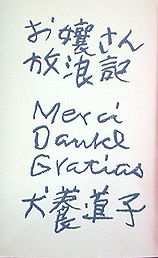 お嬢さん
放浪記
Merci
Danke
Gracias
犬養道子